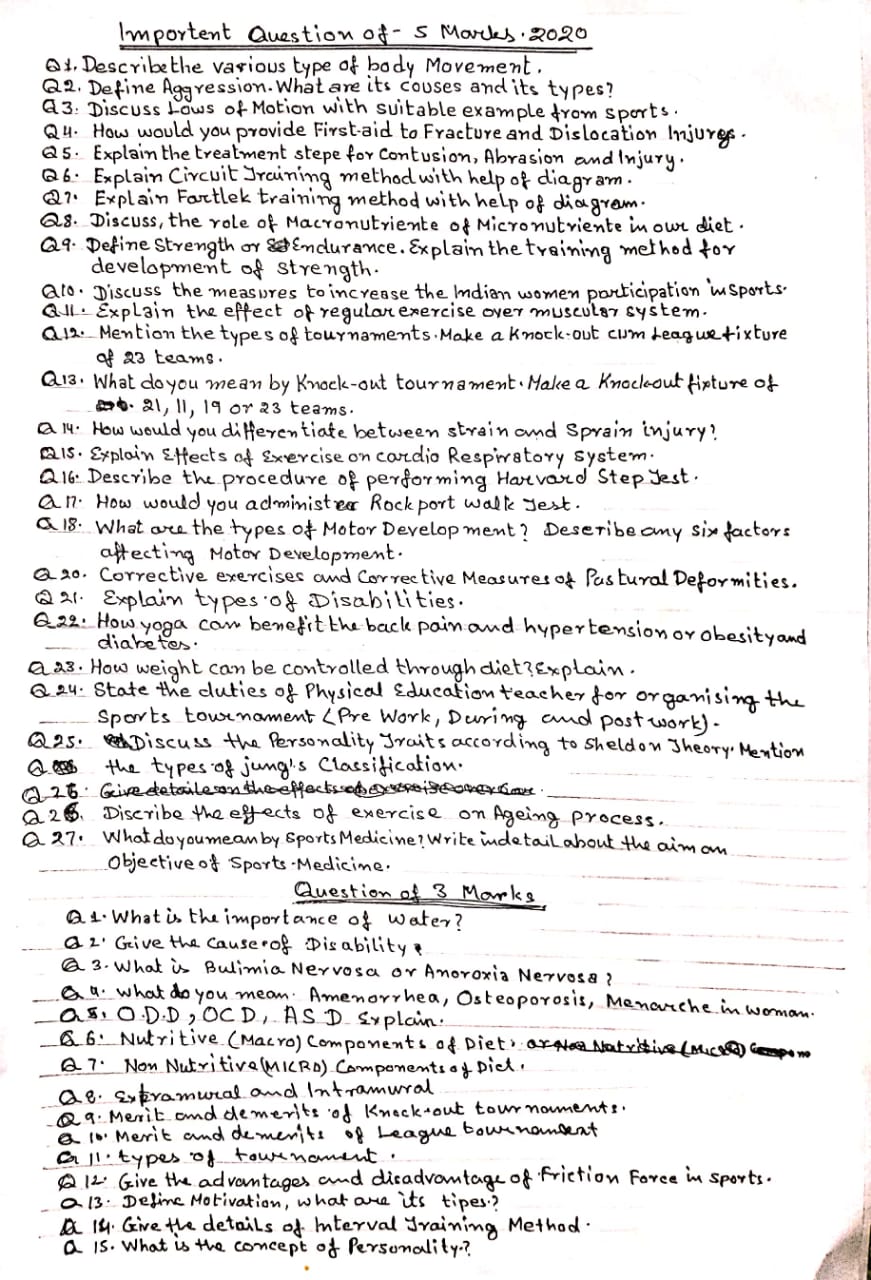 Importent Question of - 5 Marks. 2020
Q1. Describe the various type of body Movement.
Q2. Define Aggression. What are its couses and its types?
Q3. Discuss Lows of Motion with suitable example from sports.
Q4. How would you provide First-aid to Fracture and Dislocation Injures.
Q5. Explain the treatment stepe for Contusion, Abrasion and Injury.
Q6. Explain Circuit Training method with help of diagram.
Q7. Explain Fartlek training method with help of diagram.
Q8. Discuss, the role of Macronutriente of Micronutriente in our diet.
Q9. Define Strength or Endurance. Explain the training method for
development of strength.
Q10. Discuss the measures to increase the Indian women participation in sports.
Q11. Explain the effect of regular exercise over muscular system.
Q12. Mention the types of tournaments. Make a Knock-out cum League fixture
of 23 teams.
Q13. What do you mean by Knock-out tournament. Make a Knockout fixture of
21, 11, 19 or 23 teams.
Q14. How would you differentiate between strain and Sprain injury?
Q15. Explain Effects of Exercise on cardio Respiratory system.
Q16. Describe the procedure of performing Harvard Step Test.
Q17. How would you administer Rock port walk Test.
Q18. What are the types of Motor Development? Describe any six factors
affecting Motor Development.
Q20. Corrective exercises and Corrective Measures of Pastural Deformities.
Q21. Explain types of Disabilities.
Q22. How yoga can benefit the back pain and hypertension or obesity and
diabetes.
Q23. How weight can be controlled through diet? Explain.
Q24. State the duties of Physical Education teacher for organising the
Sports tournament (Pre Work, During and post work).
Q25. Discuss the Personality Traits according to Sheldon Theory. Mention
the types of jung's Classification.
Q26. Give details on the effects of exercise over
Q26. Discribe the effects of exercise on Ageing process.
Q27. What do you mean by Sports Medicine? Write indetail about the aim an
Objective of Sports-Medicine.
Question of 3 Marks
Q1. What is the importance of water?
Q2. Give the Cause of Disability
Q3. What is Bulimia Nervosa or Anoroxia Nervosa?
Q4. What do you mean. Amenorrhea, Osteoporosis, Menarche in woman.
Q5. O.D.D, OCD, ASD Explain.
Q6. Nutritive (Macro) Components of Diet. or Non Natritive (Micro) Compone
Q7. Non Nutritive (MICRO) Components of Diet.
Q8. Extramural and Intramural
Q9. Merit and demerits of Knock-out tournaments.
Q10. Merit and demerits of League tournament
Q11. types of tournament.
Q12. Give the advantages and disadvantage of Friction Force in sports.
Q13. Define Motivation, what are its tipes?
Q14. Give the details of Interval Training Method.
Q15. What is the concept of Personality?